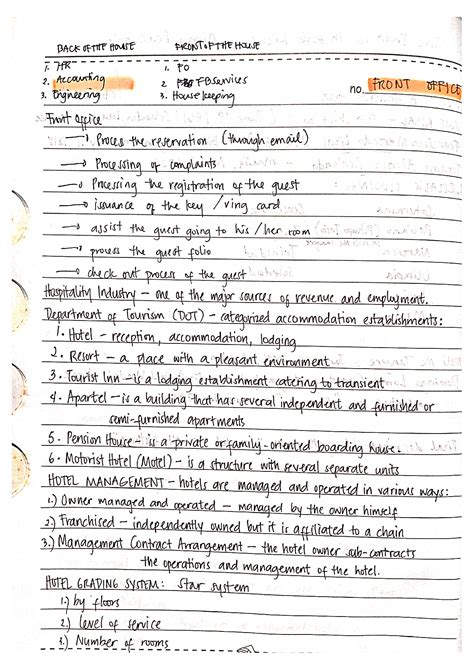 BACK OF THE HOUSE    FRONT OF THE HOUSE
1. HR    1. FO
2. Accounting    2. FB services
3. Engineering    3. House keeping
no. FRONT OFFICE
Front Office
→ Proces the reservation (through email)
→ Processing of complaints
→ Processing the registration of the guest
→ issuance of the key /ving card
→ assist the guest going to his /her room
→ process the guest folio
→ check out process of the guest
Hospitality Industry – one of the major sources of revenue and employment.
Department of Tourism (DOT) – categorized accommodation establishments:
1. Hotel – reception, accommodation, lodging
2. Resort – a place with a pleasant environment
3. Tourist Inn – is a lodging establishment catering to transient
4. Apartel – is a building that has several independent and furnished or
semi-furnished apartments
5. Pension House – is a private or family-oriented boarding house.
6. Motorist Hotel (Motel) – is a structure with several separate units
HOTEL MANAGEMENT – hotels are managed and operated in various ways:
1.) Owner managed and operated – managed by the owner himself
2.) Franchised – independently owned but it is affiliated to a chain
3.) Management Contract Arrangement – the hotel owner sub-contracts
the operations and management of the hotel.
HOTEL GRADING SYSTEM: Star system
1.) by floors
2.) level of service
3.) Number of rooms